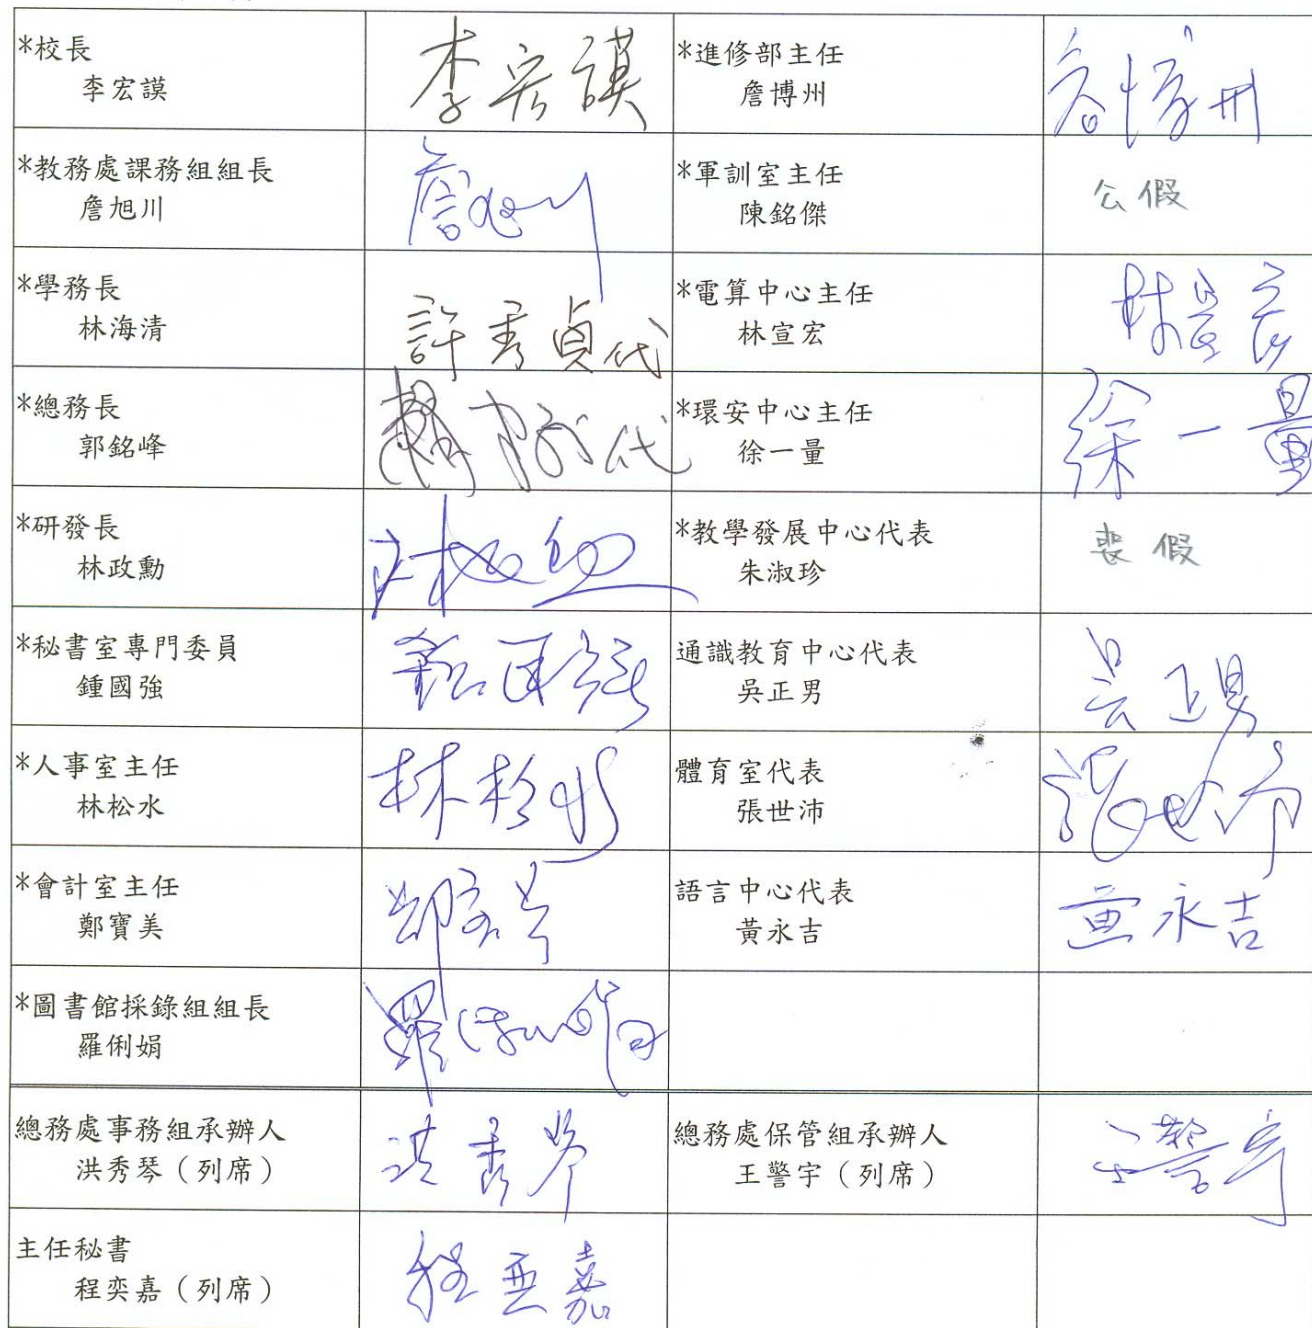 *校長
李宏謨
李宏謨
*進修部主任
詹博州
詹博州
*教務處課務組組長
詹旭川
詹旭川
*軍訓室主任
陳銘傑
公假
*學務長
林海清
許秀貞代
*電算中心主任
林宣宏
林宣宏
*總務長
郭銘峰
代
*環安中心主任
徐一量
徐一量
*研發長
林政勳
林政勳
*教學發展中心代表
朱淑珍
喪假
*秘書室專門委員
鍾國強
鍾國強
通識教育中心代表
吳正男
吳正男
*人事室主任
林松水
林松水
體育室代表
張世沛
張世沛
*會計室主任
鄭寶美
鄭寶美
語言中心代表
黃永吉
黃永吉
*圖書館採錄組組長
羅俐娟
羅俐娟
總務處事務組承辦人
洪秀琴（列席）
洪秀琴
總務處保管組承辦人
王警宇（列席）
王警宇
主任秘書
程奕嘉（列席）
程奕嘉